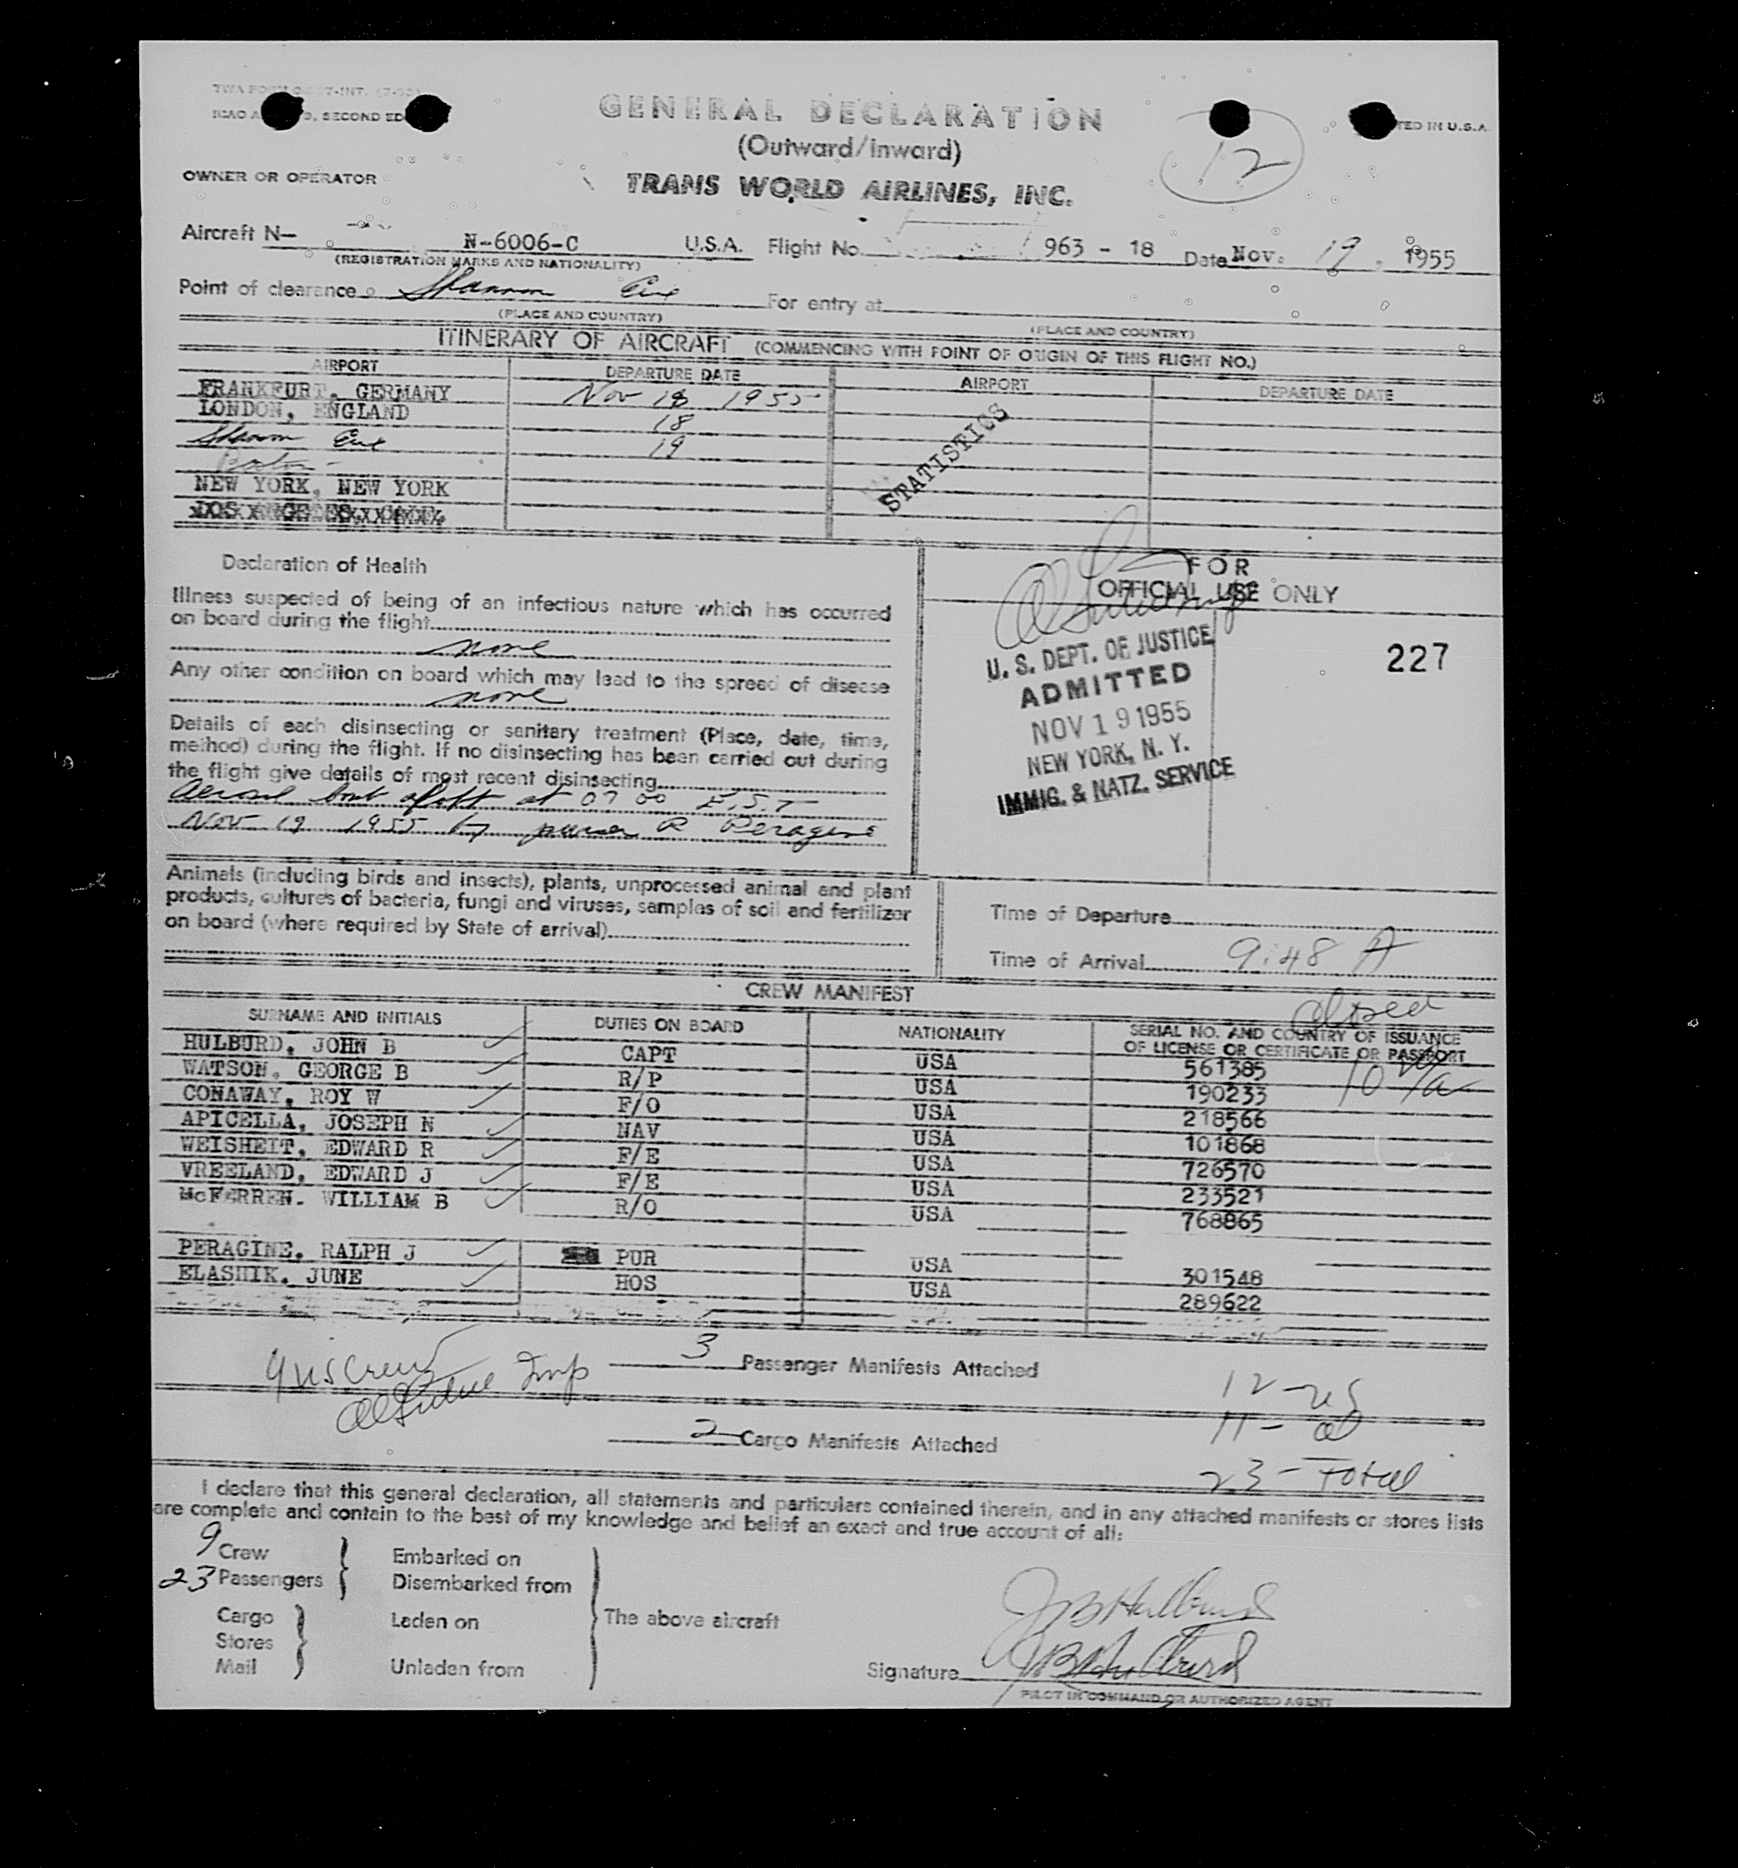 GENERAL DECLARATION
(Outward/Inward)
TRANS WORLD AIRLINES, INC.
12
SECOND ED
TED IN U.S.A.
OWNER OR OPERATOR
Aircraft N- N-6006-C U.S.A. Flight No. 963 - 18 Date Nov. 19, 1955
(REGISTRATION MARKS AND NATIONALITY)
Point of clearance Shannon Eire For entry at
(PLACE AND COUNTRY) (PLACE AND COUNTRY)
ITINERARY OF AIRCRAFT (COMMENCING WITH POINT OF ORIGIN OF THIS FLIGHT NO.)
AIRPORT DEPARTURE DATE AIRPORT DEPARTURE DATE
FRANKFURT, GERMANY Nov 18 1955
LONDON, ENGLAND 18
Shannon Eire 19
NEW YORK, NEW YORK
STATISTICS
Declaration of Health
Illness suspected of being of an infectious nature which has occurred
on board during the flight
none
Any other condition on board which may lead to the spread of disease
none
Details of each disinsecting or sanitary treatment (Place, date, time,
method) during the flight. If no disinsecting has been carried out during
the flight give details of most recent disinsecting
Aerosol bomb aloft at 07 00 E.S.T
Nov 19 1955 by purser R Peragine
FOR
OFFICIAL USE ONLY
227
U. S. DEPT. OF JUSTICE
ADMITTED
NOV 19 1955
NEW YORK, N. Y.
IMMIG. & NATZ. SERVICE
Animals (including birds and insects), plants, unprocessed animal and plant
products, cultures of bacteria, fungi and viruses, samples of soil and fertilizer
on board (where required by State of arrival)
Time of Departure
Time of Arrival 9:48 A
CREW MANIFEST
SURNAME AND INITIALS DUTIES ON BOARD NATIONALITY SERIAL NO. AND COUNTRY OF ISSUANCE
OF LICENSE OR CERTIFICATE OR PASSPORT
HULBURD, JOHN B CAPT USA 561385
WATSON, GEORGE B R/P USA 190233
CONAWAY, ROY W F/O USA 218566
APICELLA, JOSEPH N NAV USA 101868
WEISHEIT, EDWARD R F/E USA 726570
VREELAND, EDWARD J F/E USA 233521
McFERREN. WILLIAM B R/O USA 768865
PERAGINE, RALPH J PUR USA 301548
ELASHIK. JUNE HOS USA 289622
9 US Crew
3 Passenger Manifests Attached
12 - US
11 - al
2 Cargo Manifests Attached
23 - Total
I declare that this general declaration, all statements and particulars contained therein, and in any attached manifests or stores lists
are complete and contain to the best of my knowledge and belief an exact and true account of all:
9 Crew Embarked on
23 Passengers Disembarked from
Cargo Laden on The above aircraft
Stores
Mail Unladen from
JB Hulburd
Signature JB Hulburd
PILOT IN COMMAND OR AUTHORIZED AGENT